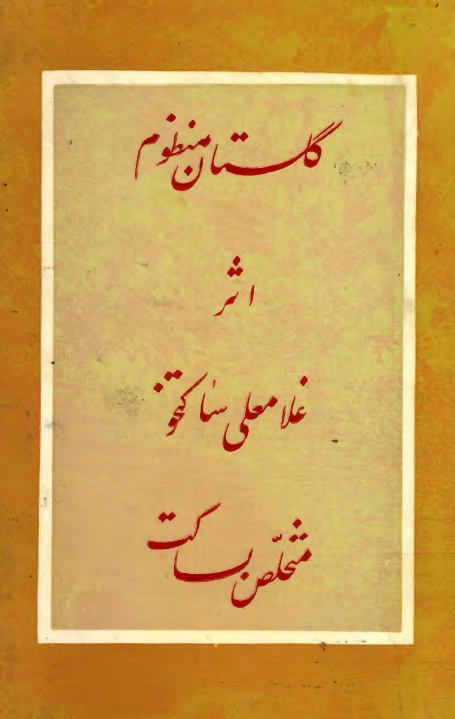 گلستان منظوم
اثر
غلامعلی ساکتخو
متخلّص بساکت